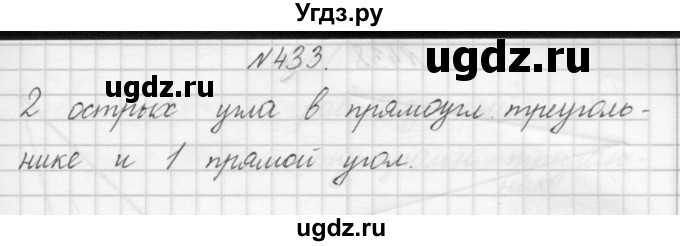 Угдз.ру
№433.
ugdz.ru
2 острых угла в прямоугл. треуголь-
нике и 1 прямой угол.
ugdz.ru
ugdz.ru